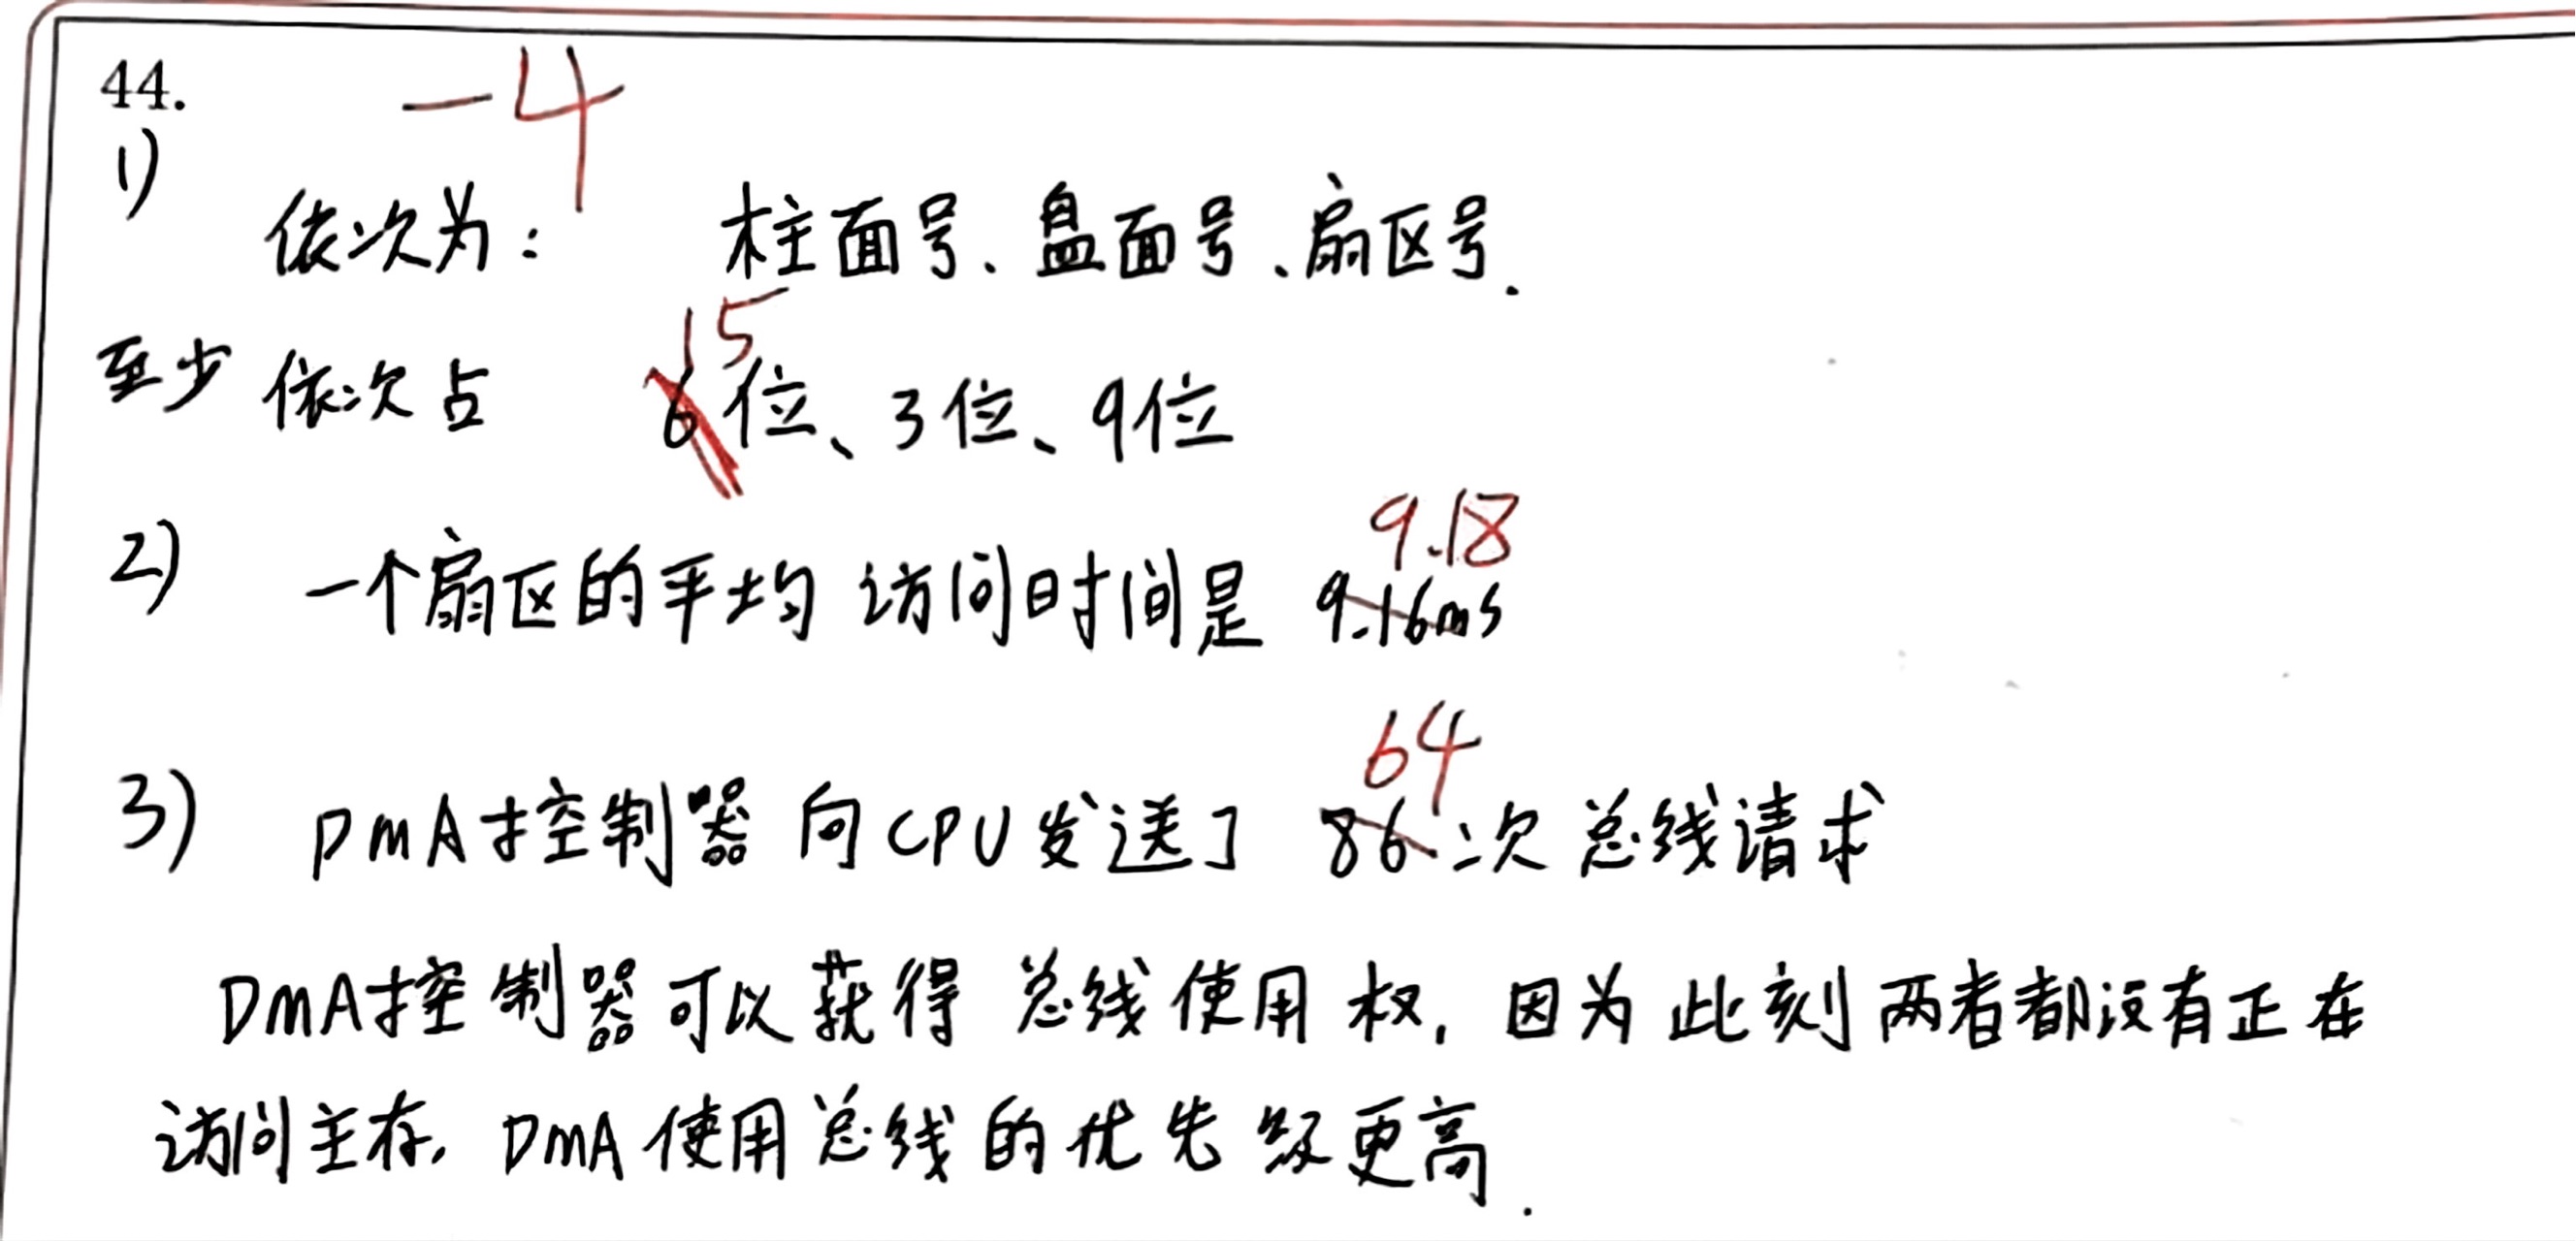 44.
-4
1)
依次为: 柱面号、盘面号、扇区号.
15
至少依次占 6位、3位、9位
9.18
2) 一个扇区的平均访问时间是 9.16ms
64
3) DMA控制器向CPU发送了 86次总线请求
DMA控制器可以获得总线使用权, 因为此刻两者都没有正在
访问主存, DMA使用总线的优先级更高.